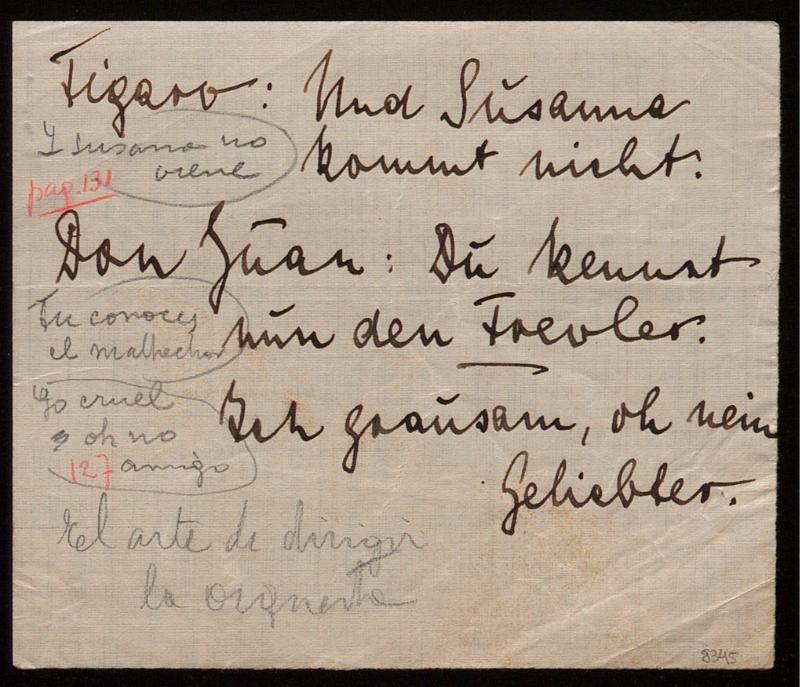 Figaro: Und Susanna
kommt nicht.
Y susana no
viene
pag. 131
Don Juan: Du kennst
nun den Frevler.
Tu conoces
el malhechor
Ich grausam, oh nein
Geliebter.
Yo cruel
oh no
127 amigo
El arte de dirigir
la orquesta
8345